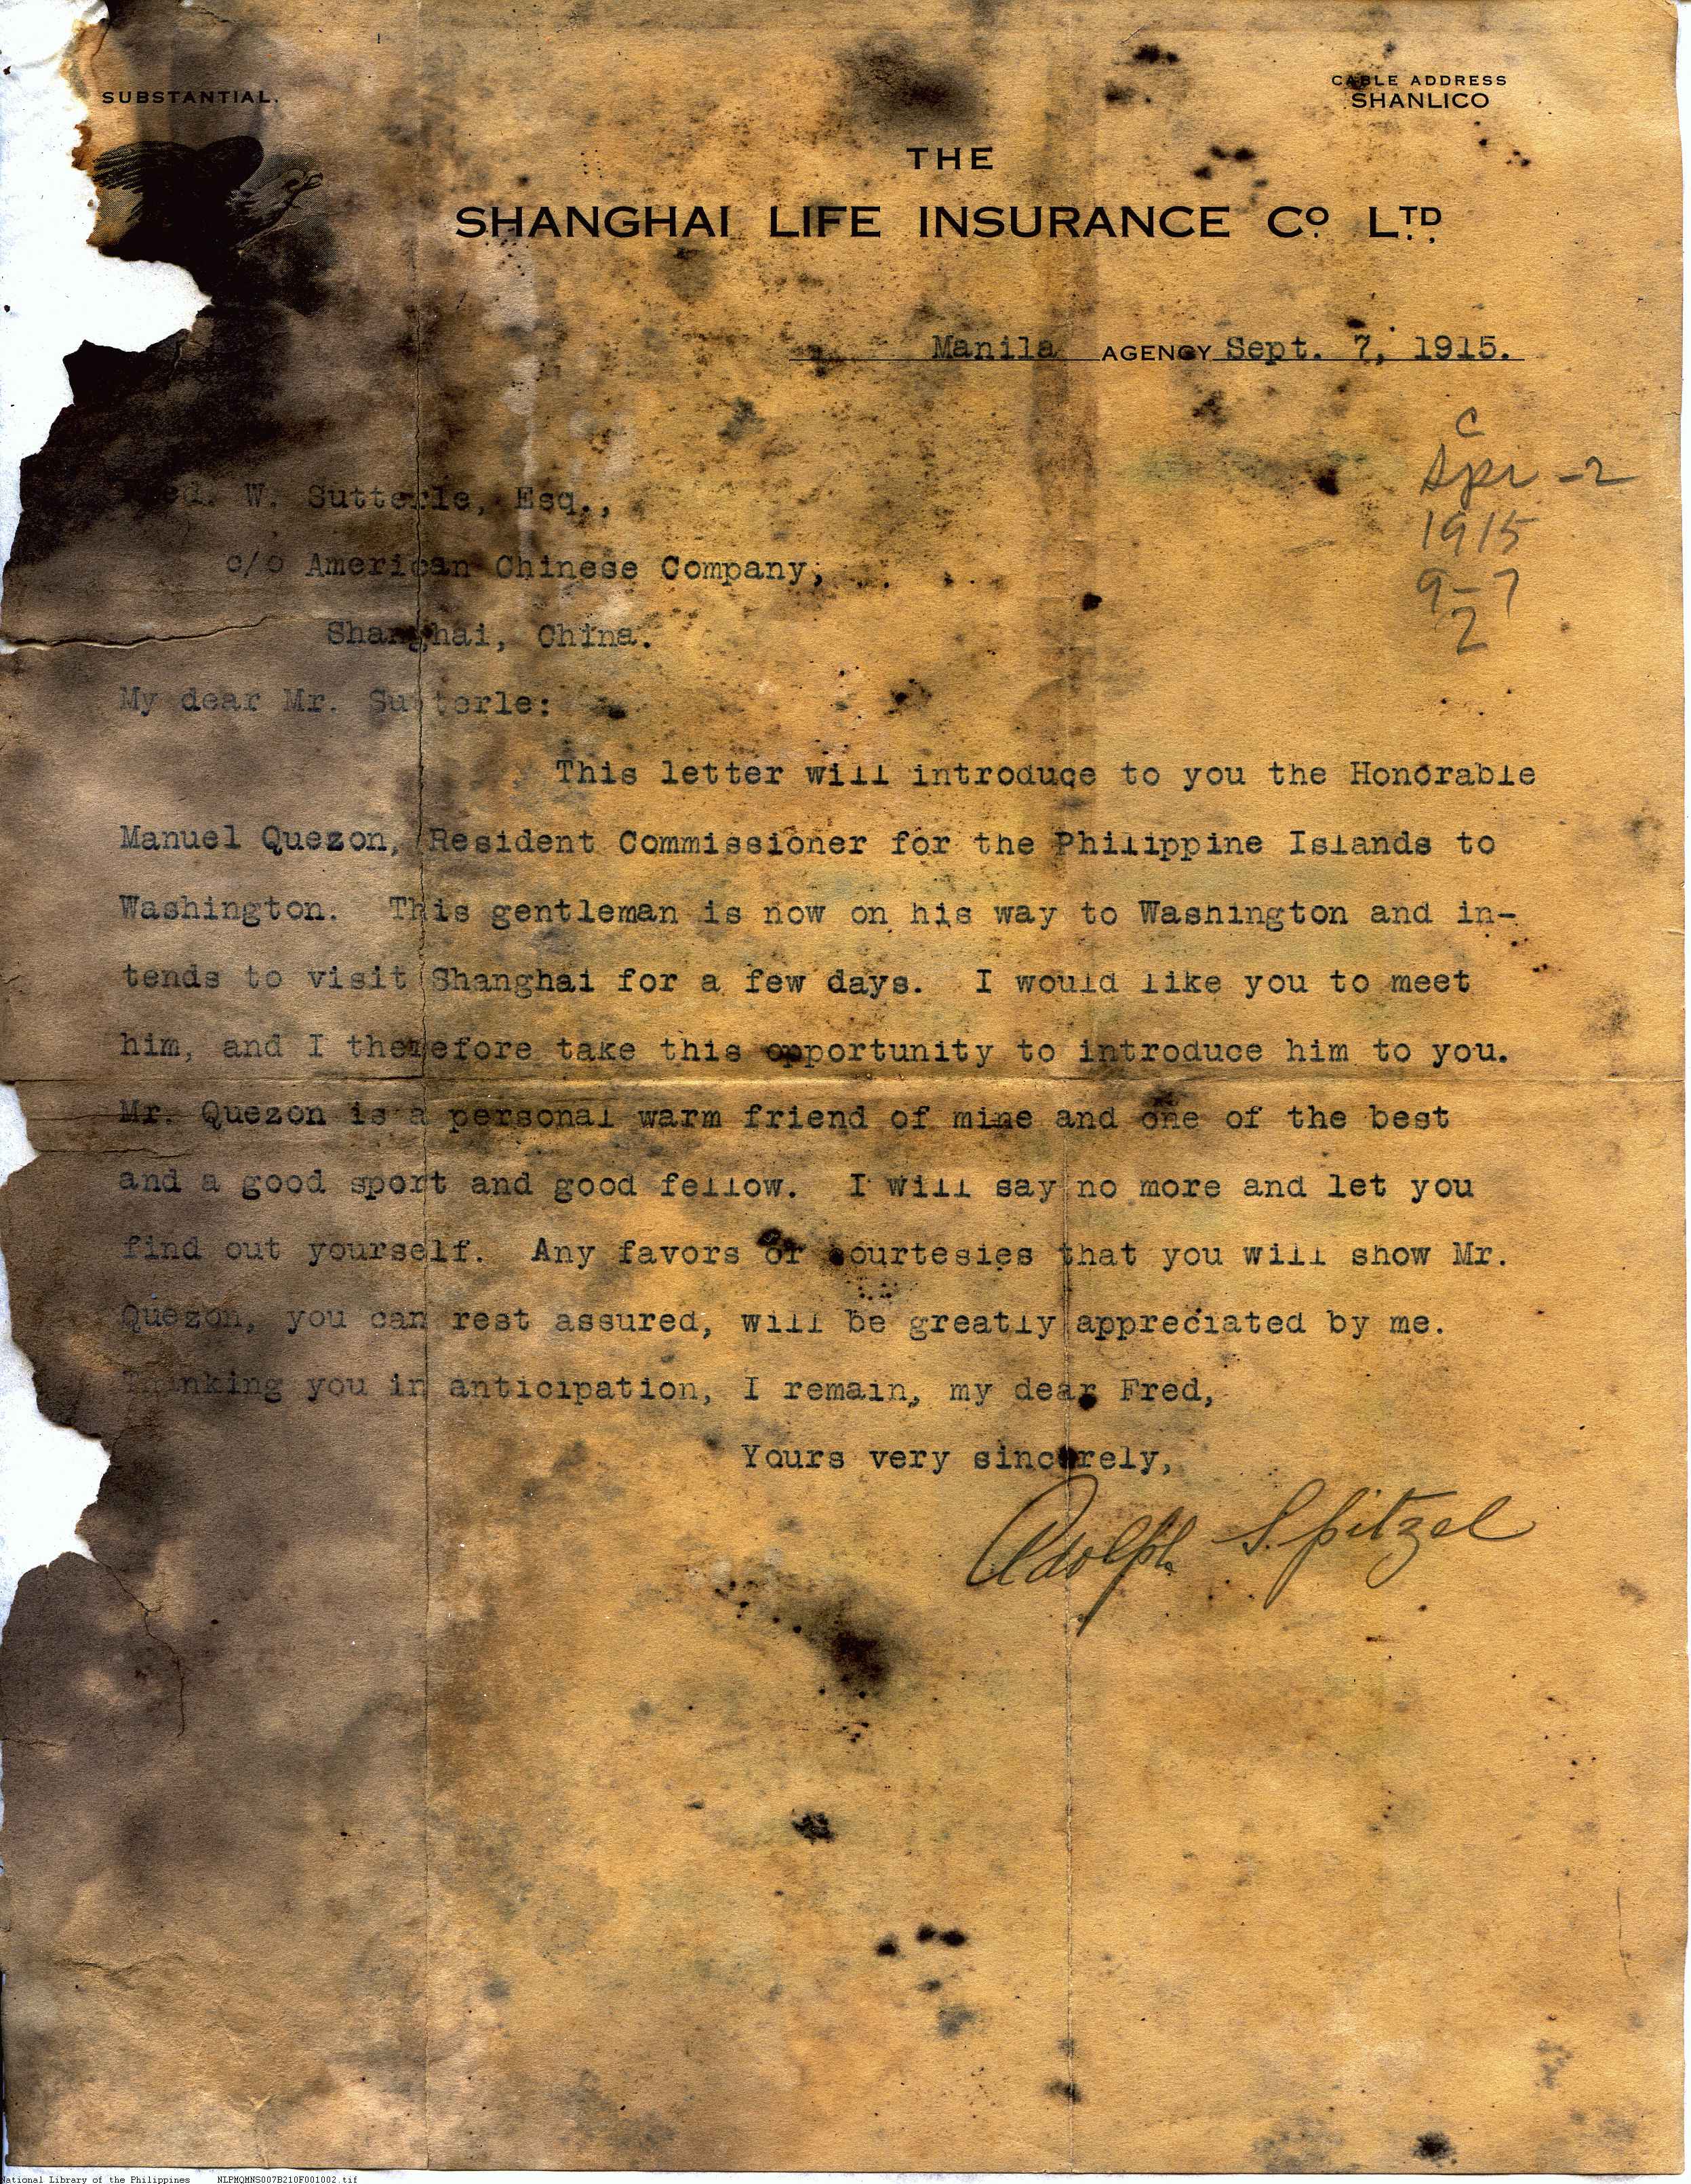 SUBSTANTIAL.
CABLE ADDRESS
SHANLICO
THE
SHANGHAI LIFE INSURANCE Co. LTD.
Manila AGENCY Sept. 7, 1915.
C
Spr -2
1915
9-7
2
ed. W. Sutterle, Esq.,
c/o American Chinese Company,
Shanghai, China.
My dear Mr. Sutterle:
This letter will introduce to you the Honorable
Manuel Quezon, Resident Commissioner for the Philippine Islands to
Washington. This gentleman is now on his way to Washington and in-
tends to visit Shanghai for a few days. I would like you to meet
him, and I therefore take this opportunity to introduce him to you.
Mr. Quezon is a personal warm friend of mine and one of the best
and a good sport and good fellow. I will say no more and let you
find out yourself. Any favors or courtesies that you will show Mr.
Quezon, you can rest assured, will be greatly appreciated by me.
Thanking you in anticipation, I remain, my dear Fred,
Yours very sincerely,
Adolph Spitzel
National Library of the Philippines NLPMQMNS007B210F001002.tif